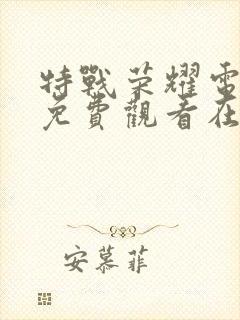 特戰荣耀電
免費觀看在
安慕菲